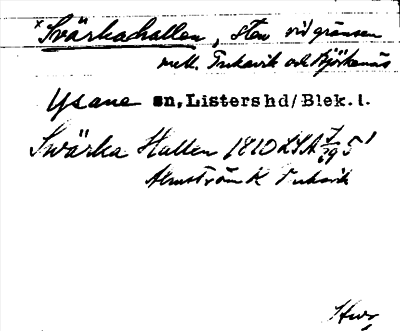 × Svärkahallen, sten vid gränsen
mell. Pukavik och Björkenäs
Ysane sn, Listers hd/Blek. l.
Swärka Hallen 1810 LSA 7/29 5¹
Almström K Pukavik